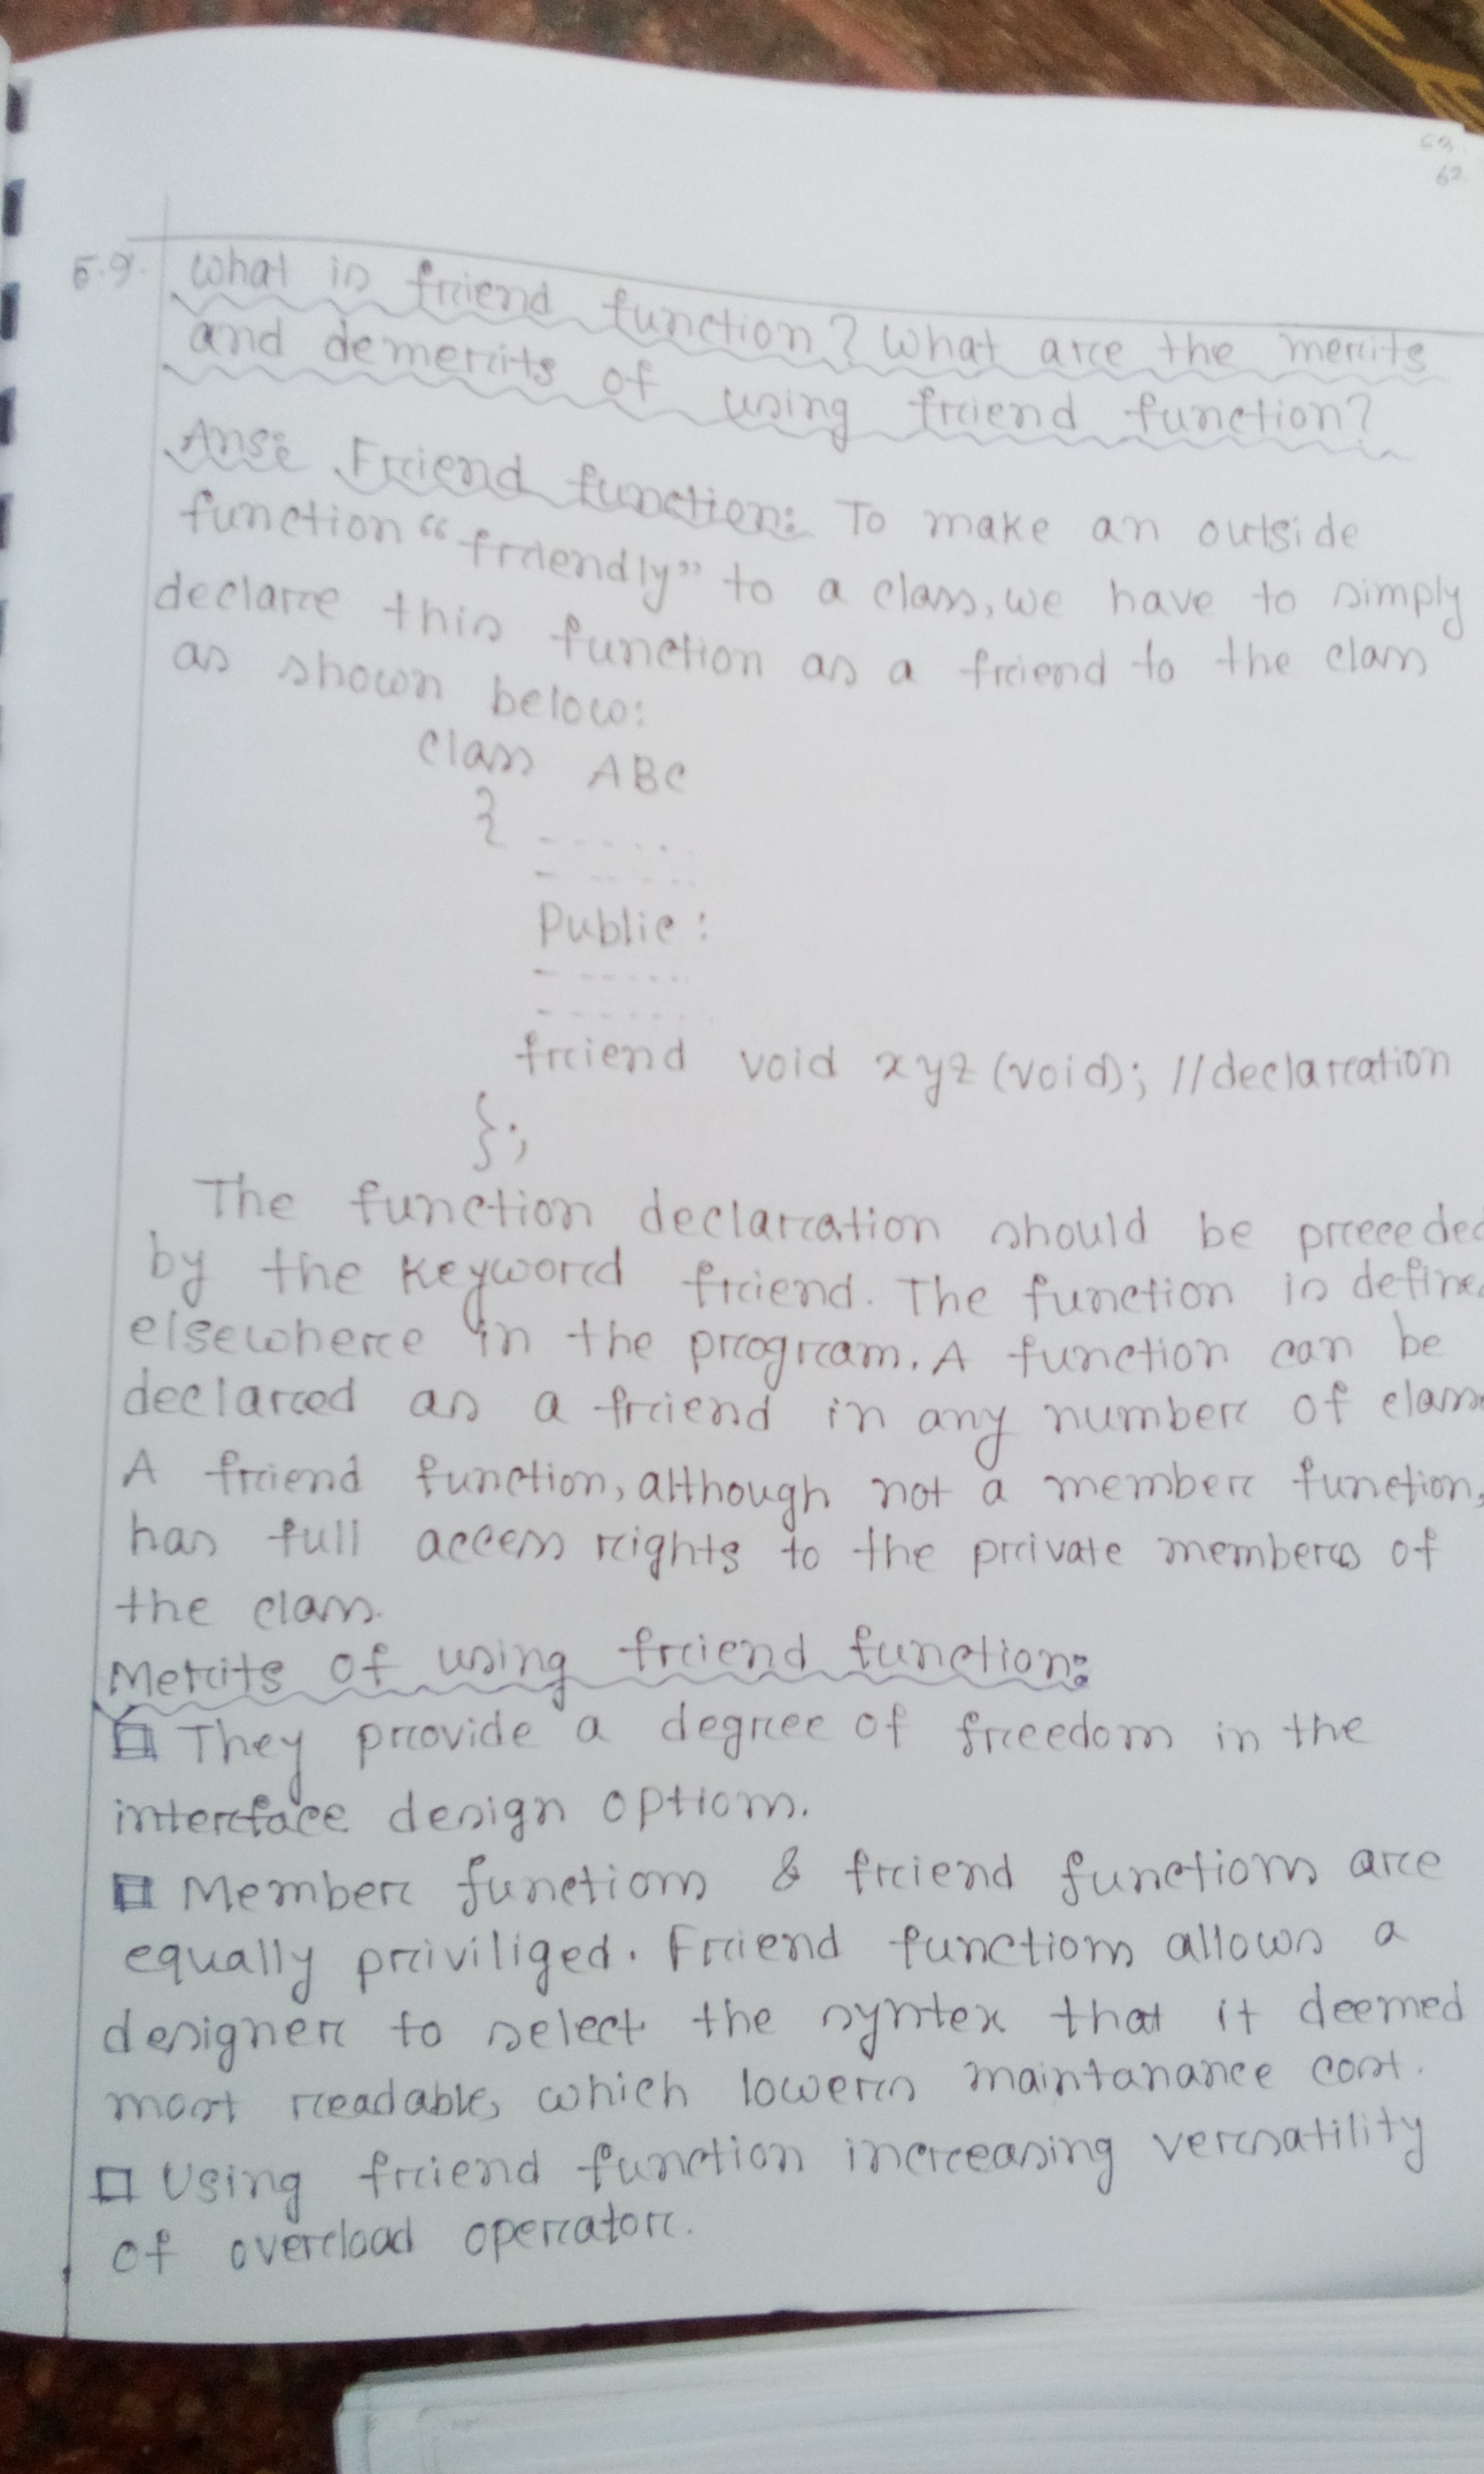 63
62
5.9. What is friend function? What are the merits
and demerits of using friend function?
Ans: Friend function: To make an outside
function "friendly" to a class, we have to simply
declare this function as a friend to the class
as shown below:
class ABC
{ ------
------
Public:
------
------
friend void xyz (void); //declaration
};
The function declaration should be preceded
by the keyword friend. The function is define
elsewhere in the program. A function can be
declared as a friend in any number of class
A friend function, although not a member function,
has full access rights to the private members of
the class.
Merits of using friend function:
□ They provide a degree of freedom in the
interface design options.
□ Member functions & friend functions are
equally priviliged. Friend functions allows a
designer to select the syntex that it deemed
most readable, which lowers maintanance cost.
□ Using friend function increasing versatility
of overload operator.